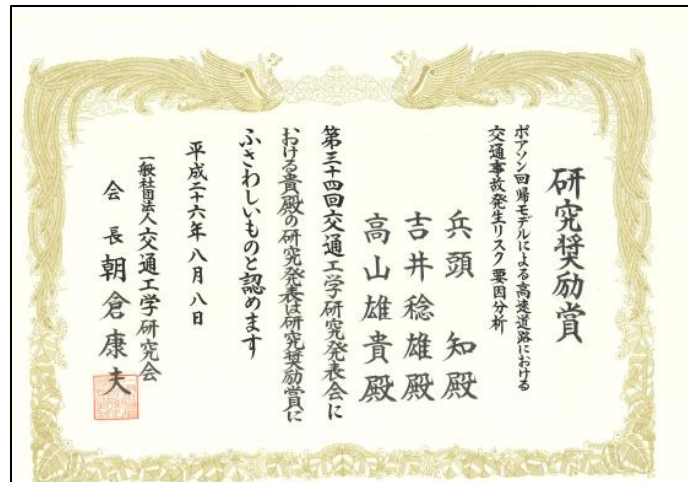 研究奨励賞
ポアソン回帰モデルによる高速道路における
交通事故発生リスク要因分析
兵頭 知殿
吉井稔雄殿
高山雄貴殿
第三十四回交通工学研究発表会に
おける貴殿の研究発表は研究奨励賞に
ふさわしいものと認めます
平成二十六年八月八日
一般社団法人交通工学研究会
会長 朝倉康夫